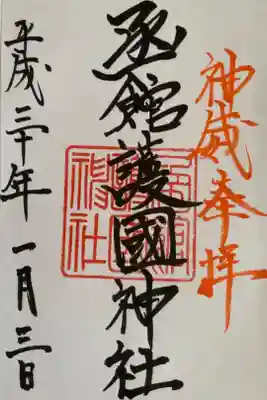 神威奉拝
函館護國神社
平成三十年一月三日